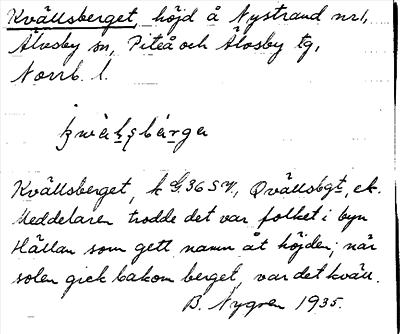 Kvällsberget, höjd å Nystrand nr 1,
Älvsby sn, Piteå och Älvsby tg,
Norrb. l.
Kvällsberget, k 36 SV, Qvällsbgt, ek.
Meddelaren trodde det var folket i byn
Hällan som gett namn åt höjden; när
solen gick bakom berget, var det kväll.
B. Nygren 1935.